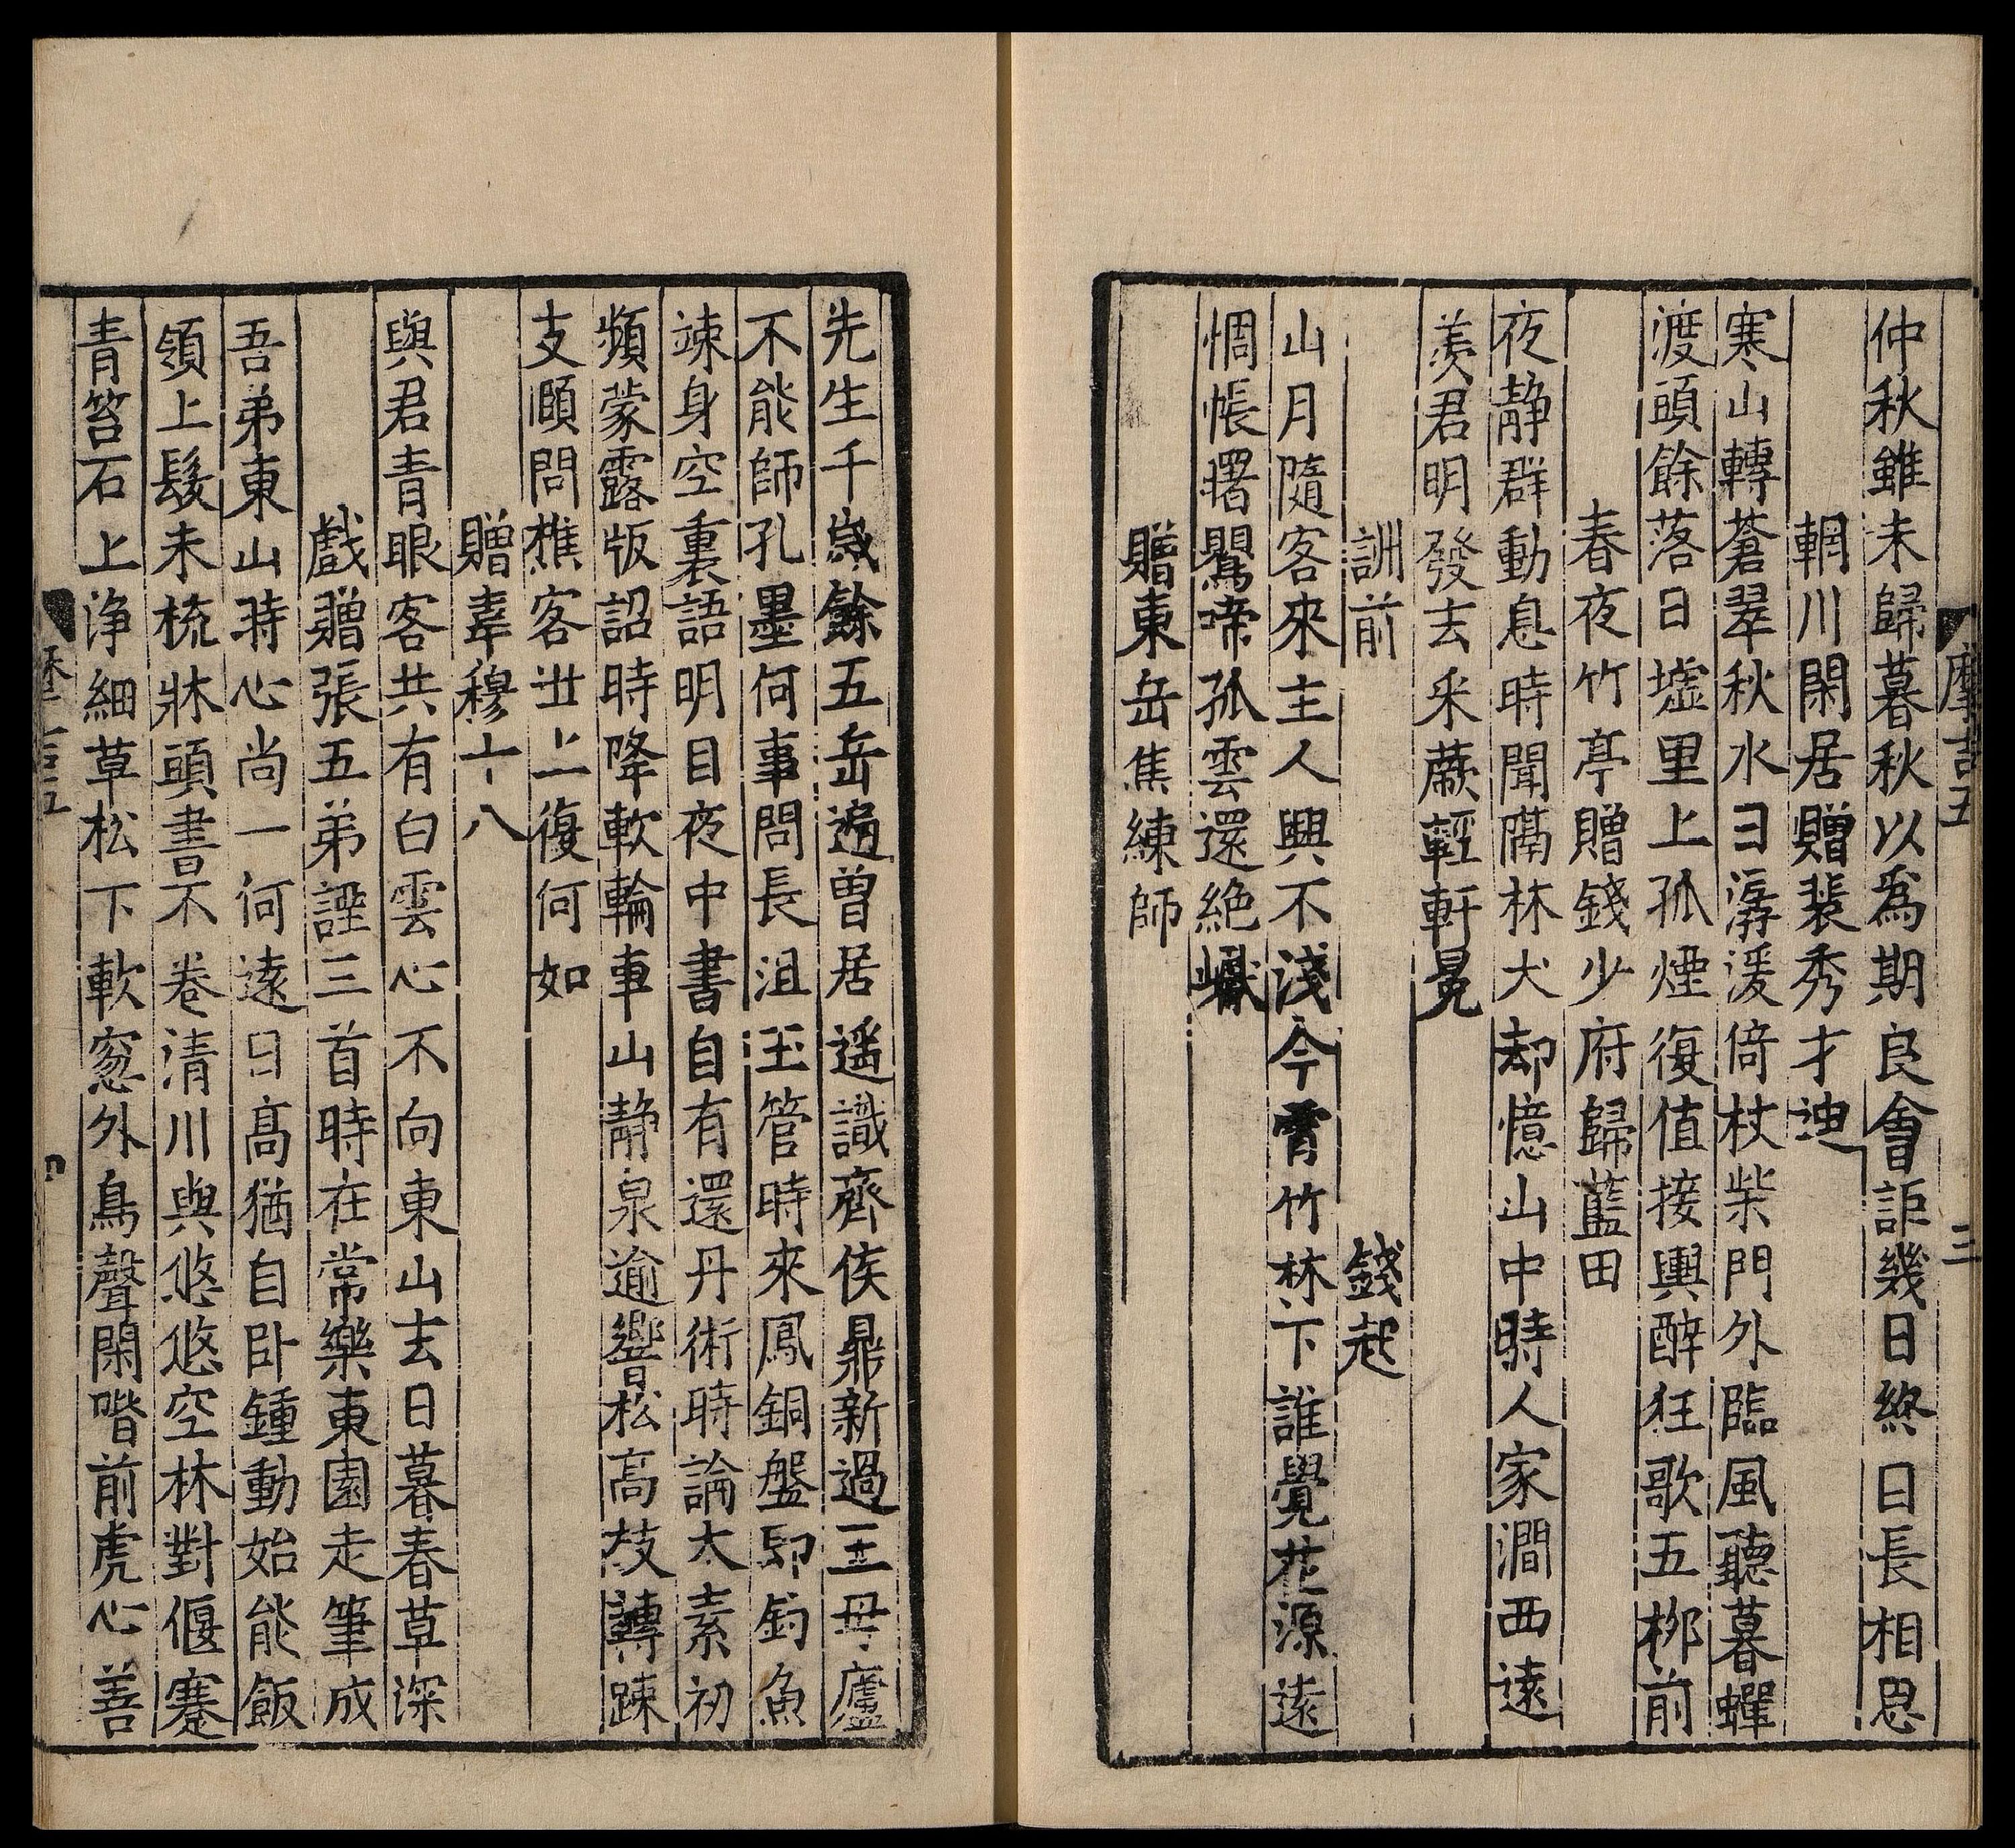 仲秋雖未歸暮秋以爲期良會詎幾日終日長相思
輞川閑居贈裴秀才迪
寒山轉蒼翠秋水日潺湲倚杖柴門外臨風聽暮蟬
渡頭餘落日墟里上孤煙復值接輿醉狂歌五桺前
春夜竹亭贈錢少府歸藍田
夜靜群動息時聞隔林犬却憶山中時人家澗西遠
羨君明發去采蕨輕軒冕
詶前 錢起
山月隨客來主人興不淺今宵竹林下誰覺花源遠
惆悵曙鸎啼孤雲還絶巘
贈東岳焦練師
先生千歲餘五岳遍曾居遥識齊侯鼎新過王母廬
不能師孔墨何事問長沮玉管時來鳳銅盤卽釣魚
竦身空裏語明目夜中書自有還丹術時論太素初
頻蒙露版詔時降軟輪車山静泉逾響松高枝轉踈
支頤問樵客丗上復何如
贈韋穆十八
與君青眼客共有白雲心不向東山去日暮春草深
戲贈張五弟諲三首時在常樂東園走筆成
吾弟東山時心尚一何遠日髙猶自卧鍾動始能飯
領上髮未梳牀頭書不卷清川與悠悠空林對偃蹇
青笞石上浄細草松下軟窓外鳥聲閑階前虎心善